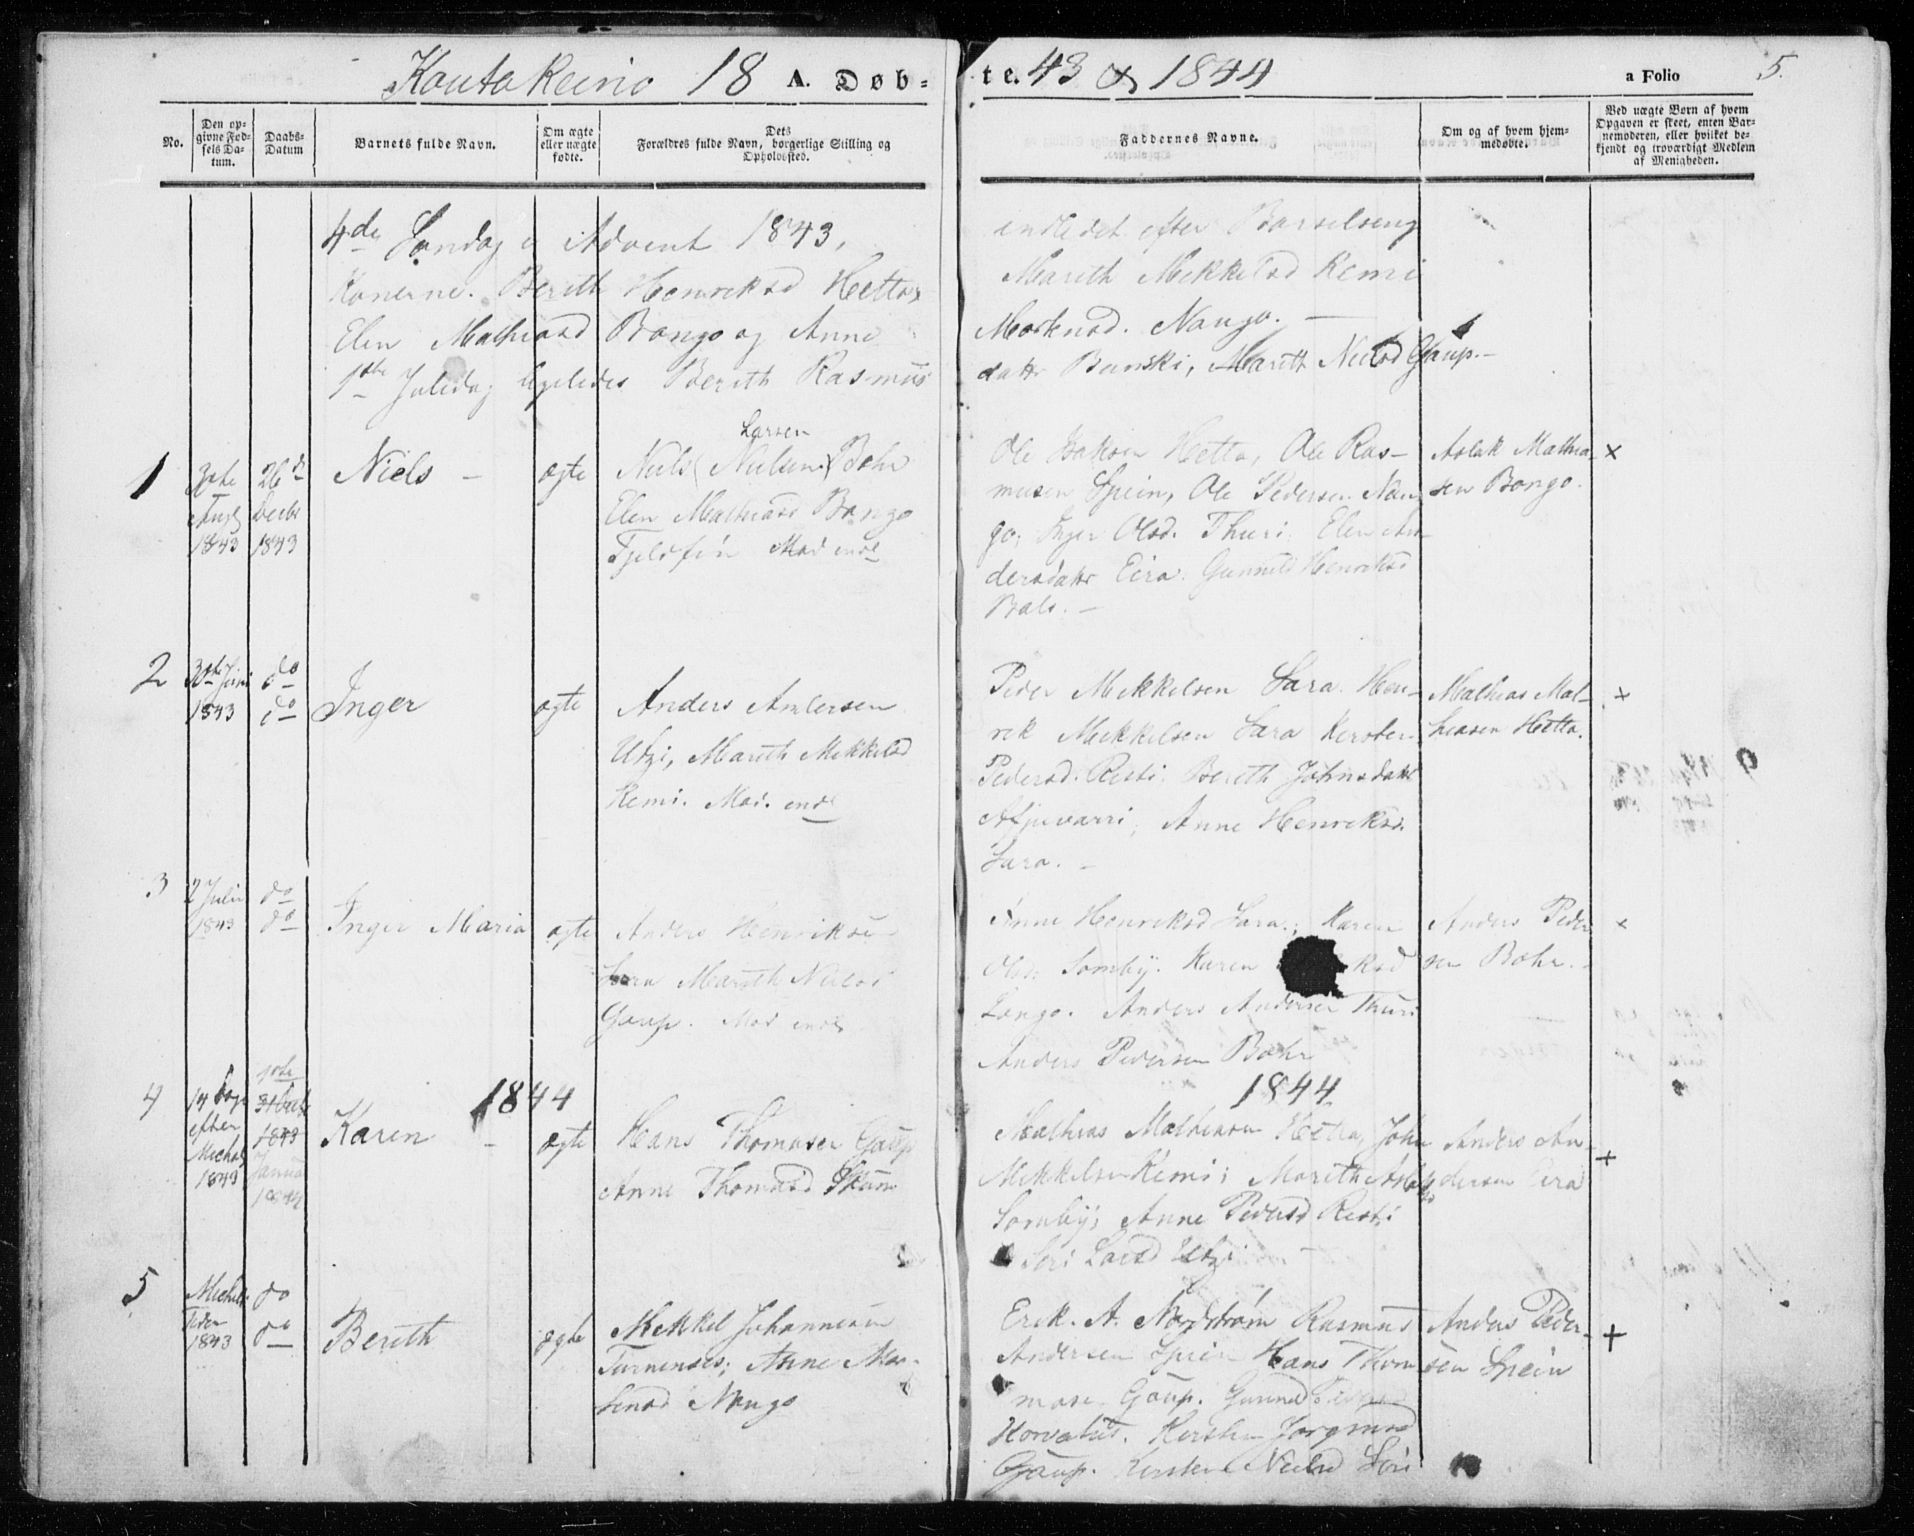 Kautokeino 18 A. Døb-
te. 43 & 1844 a Folio 5.
No.
Den op-
givne Fød-
sels Da-
tum.
Daabs-
Datum
Barnets fulde Navn.
Om ægte
eller uægte
fødte.
Dets
Forældres fulde Navn, borgerlige Stilling og
Opholdssted.
Faddernes Navne.
Om og af hvem hjem-
medøbte.
Ved uægte Børn af hvem
Opgaven er skeet, enten Bar-
nemoderen, eller hvilket be-
kjendt og troværdigt Medlem
af Menigheden.
4de Søndag i Advent 1843,
Konerne. Berith Henriksd Hetta,
Elen Mathiasd Bongo og Anne
1ste Juledag ligeledes Berith Rasmus
indledet efter Barselseng
Marith Mekkelsd Kemi
Morknsd. Nango. —
datter Banski, Marith Nielsd Gaup. —
1
Augs
1843
26de
Decbr
1843
Niels —
ægte
Larsen
Niels (Nielsen) Bæhr
Elen Mathiasd Bongo
Fjeldfin Mod indl
Ole Isaksen Hetta, Ole Ras-
musen Spein, Ole Pedersen Nan
go, Inger Olsd. Thuri, Elen An
dersdattr Eira. Gunnild Henriksd
Bals. —
Aslak Mathia-
sen Bongo.
×
2
30te Juni
1843
do
do
Inger
ægte
Anders Andersen
Utzi, Marith Mekkelsd
Kemi. Mod. indl
Peder Mekkelsen Sara. Hen-
rik Mekkelsen Sara Kirsten
Pedersd. Risti. Berith Johnsdattr
Afjuvarri, Anne Henriksd.
Sara. —
Mathias Mat-
hiesen Hetta.
×
3
2 Julii
1843
do
do
Inger Maria
ægte
Anders Henriksen
Sara Marith Nielsd
Gaup. Mod indl
Anne Henriksd Sara.; Karen
Olsd. Somby. Karen ksd
Longo. Anders Andersen Thuri
Anders Pedersen Bæhr
Anders Peder
sen Bæhr. —
×
1844
1844
4
14 Dage
efter
Michali
1843
1ste
31 Decbr
1843
Januar
1844
Karen —
ægte
Hans Thomasen Gaup
Anne Thomasd Skum
Mathias Mathiesen Hetta, John
Mekkelsen Kemi; Marith Aslaks
Somby; Anne Pedersd Risti
Siri Larsd Utzi —
Anders An-
dersen Eira
+
5
Michali
Tider
1843
do
do
Berith
ægte
Mekkel Johannesen
Turnensis; Anne Mor-
tensd Nango
Erik. A. Nordstrøm Rasmus
Andersen Spein Hans Thom
masen Gaup. Gunnild
Korvatus. Kirsten Jørgensd
Gaup. Kirsten Nielsd Siri
Anders Peder-
sen Spein
+